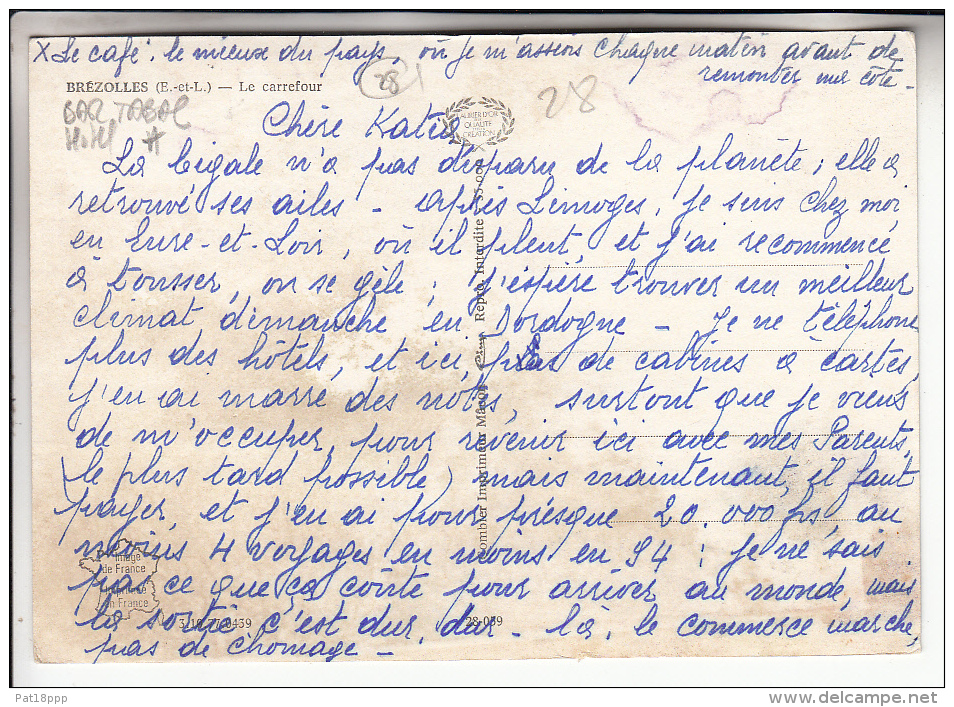 X Le café, le mieux du pays, où je m'assieds chaque matin avant de
remonter ma côte -
28
BRÉZOLLES (E.-et-L.) — Le carrefour
28
BAR TABAC
Hôtel
LAURIER D'OR
QUALITÉ
CRÉATION
Chère Katia,
La Cigale n'a pas disparu de la planète ; elle a
retrouvé ses ailes - après Limoges, je suis chez moi
en Eure-et-Loir, où il pleut, et j'ai recommencé
à tousser, on se gèle ; j'espère trouver un meilleur
climat dimanche en Dordogne - Je ne téléphone
plus des hôtels, et ici, pas de cabines à cartes,
j'en ai marre des notes, surtout que je viens
de m'occuper, pour revenir ici avec mes Parents,
(le plus tard possible) mais maintenant, il faut
payer, et j'en ai pour presque 20.000 frs, au
moins 4 voyages en moins en 94 ; je ne sais
pas ce que ça coûte pour arriver au monde, mais
la sortie c'est dur, dur - là, le commerce marche,
pas de chômage -
Combier Imprimeur Mâcon
Repro. Interdite
Image
de France
en France
3.10.77.0439
28-039
Pat18ppp
www.delcampe.net